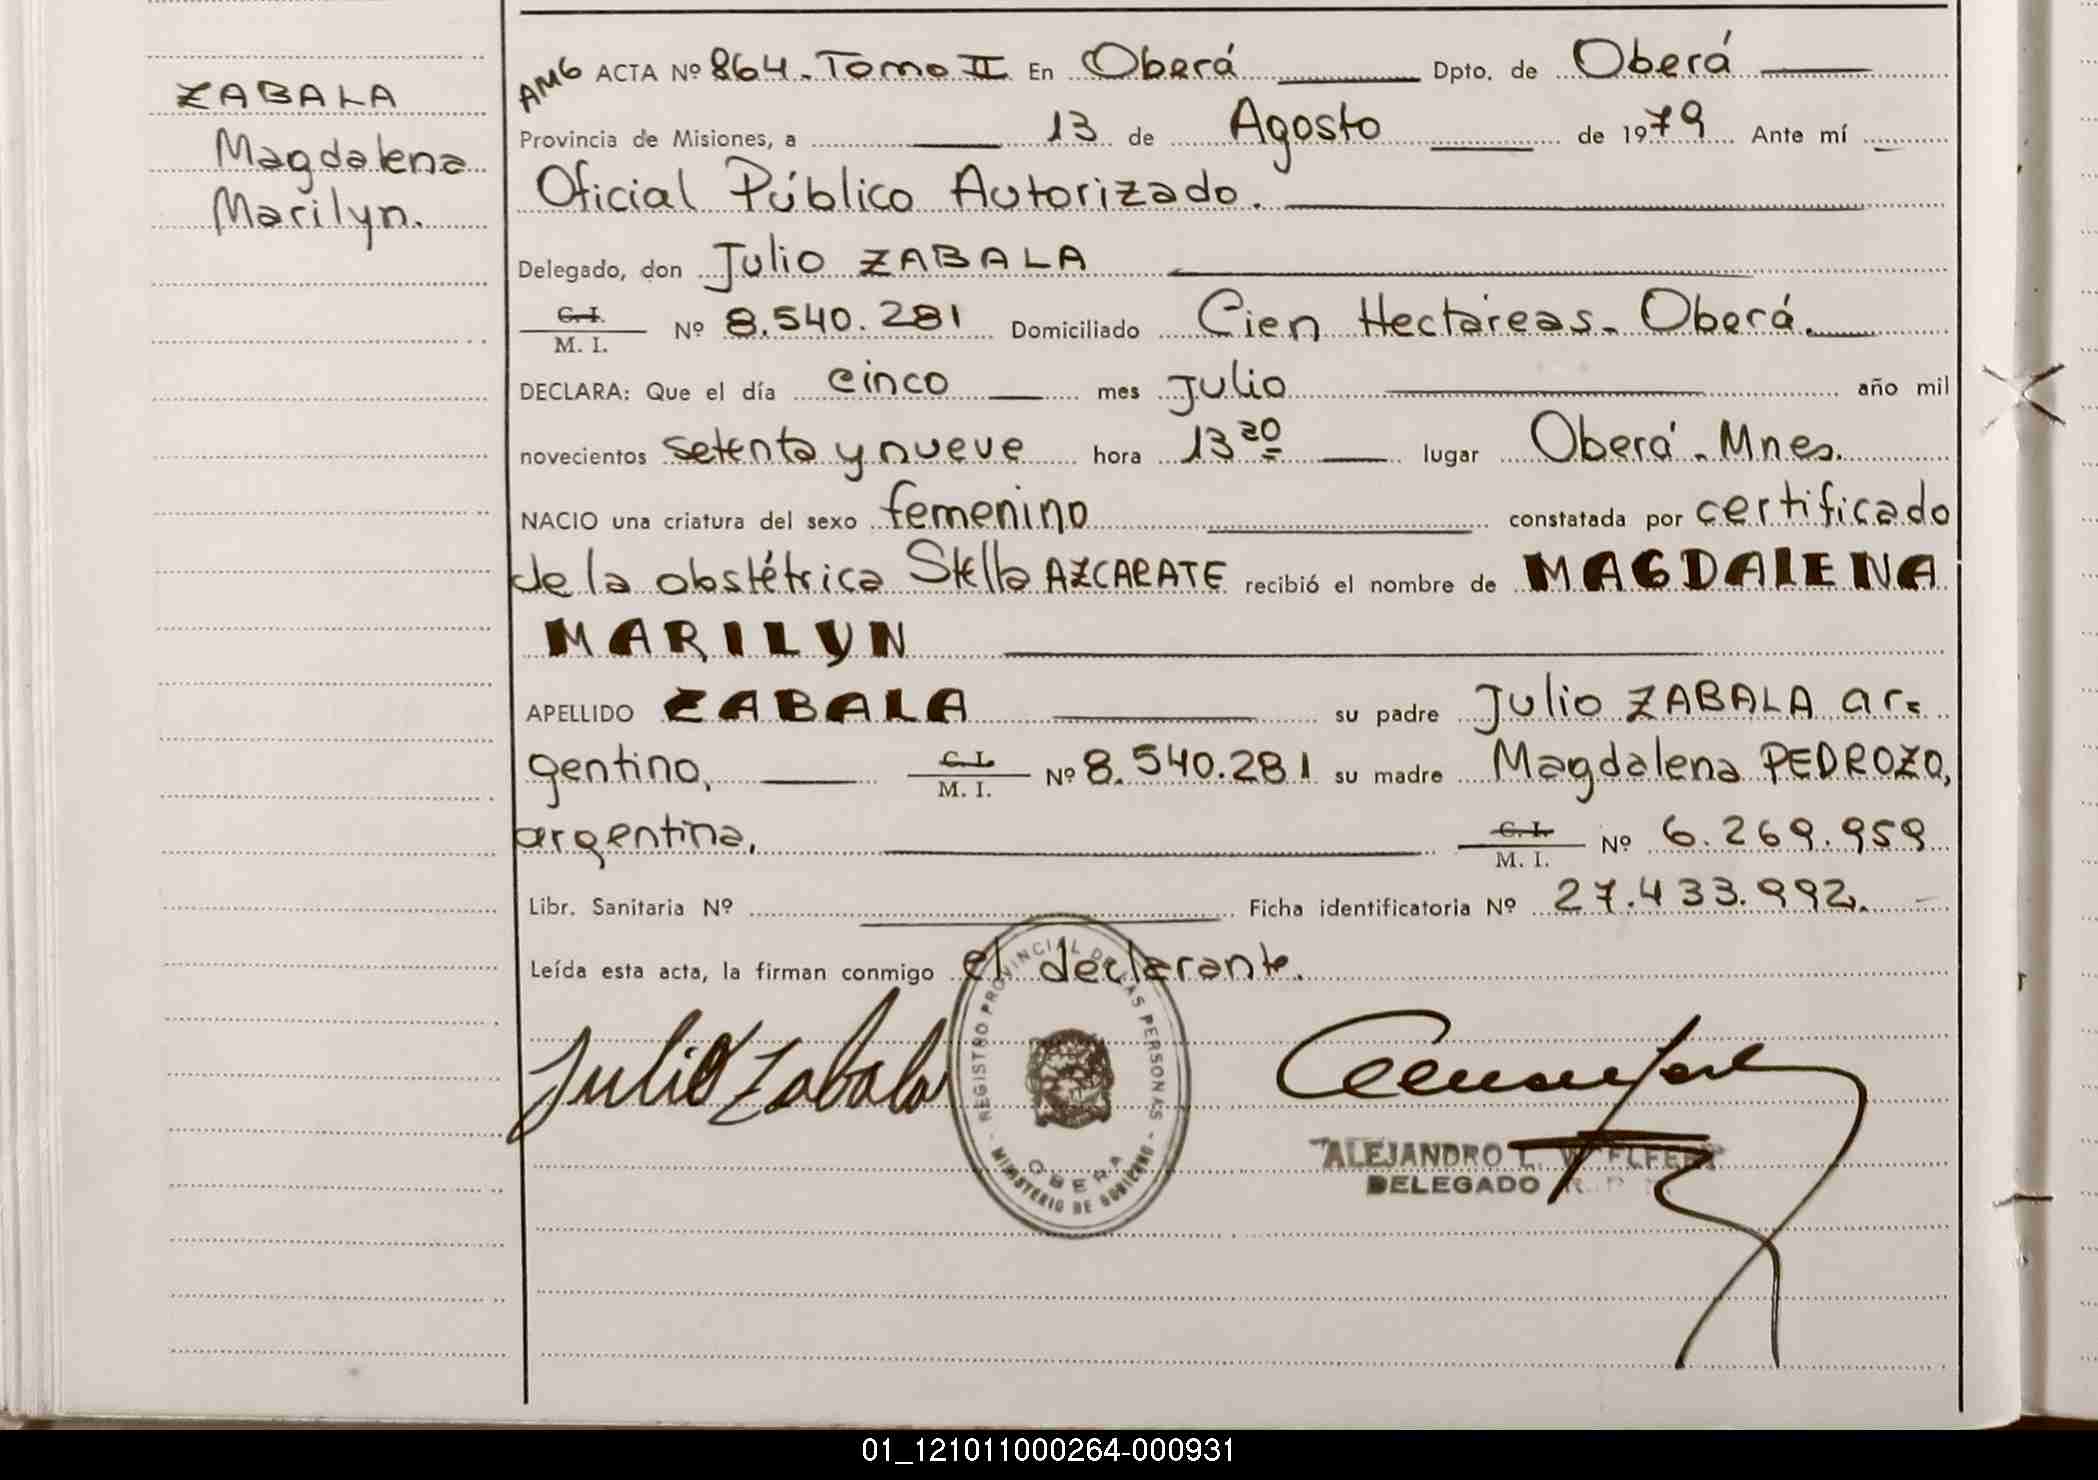 ZABALA
Magdalena
Marilyn.
AMG ACTA Nº 864. Tomo II En Oberá Dpto. de Oberá
Provincia de Misiones, a 13 de Agosto de 1979 Ante mí
Oficial Público Autorizado.
Delegado, don Julio ZABALA
C.I.
M. I. Nº 8.540.281 Domiciliado Cien Hectáreas. Oberá.
DECLARA: Que el día cinco mes Julio año mil
novecientos setenta y nueve hora 13 20 lugar Oberá. Mnes.
NACIO una criatura del sexo femenino constatada por certificado
de la obstétrica Stella AZCARATE recibió el nombre de MAGDALENA
MARILYN
APELLIDO ZABALA su padre Julio ZABALA ar=
gentino, C.I.
M. I. Nº 8.540.281 su madre Magdalena PEDROZO,
argentina, C.I.
M. I. Nº 6.269.959
Libr. Sanitaria Nº Ficha identificatoria Nº 27.433.992.
Leída esta acta, la firman conmigo el declarante.
Julio Zabala
REGISTRO PROVINCIAL DE LAS PERSONAS
OBERA
MINISTERIO DE GOBIERNO
ALEJANDRO L.
DELEGADO
01_121011000264-000931